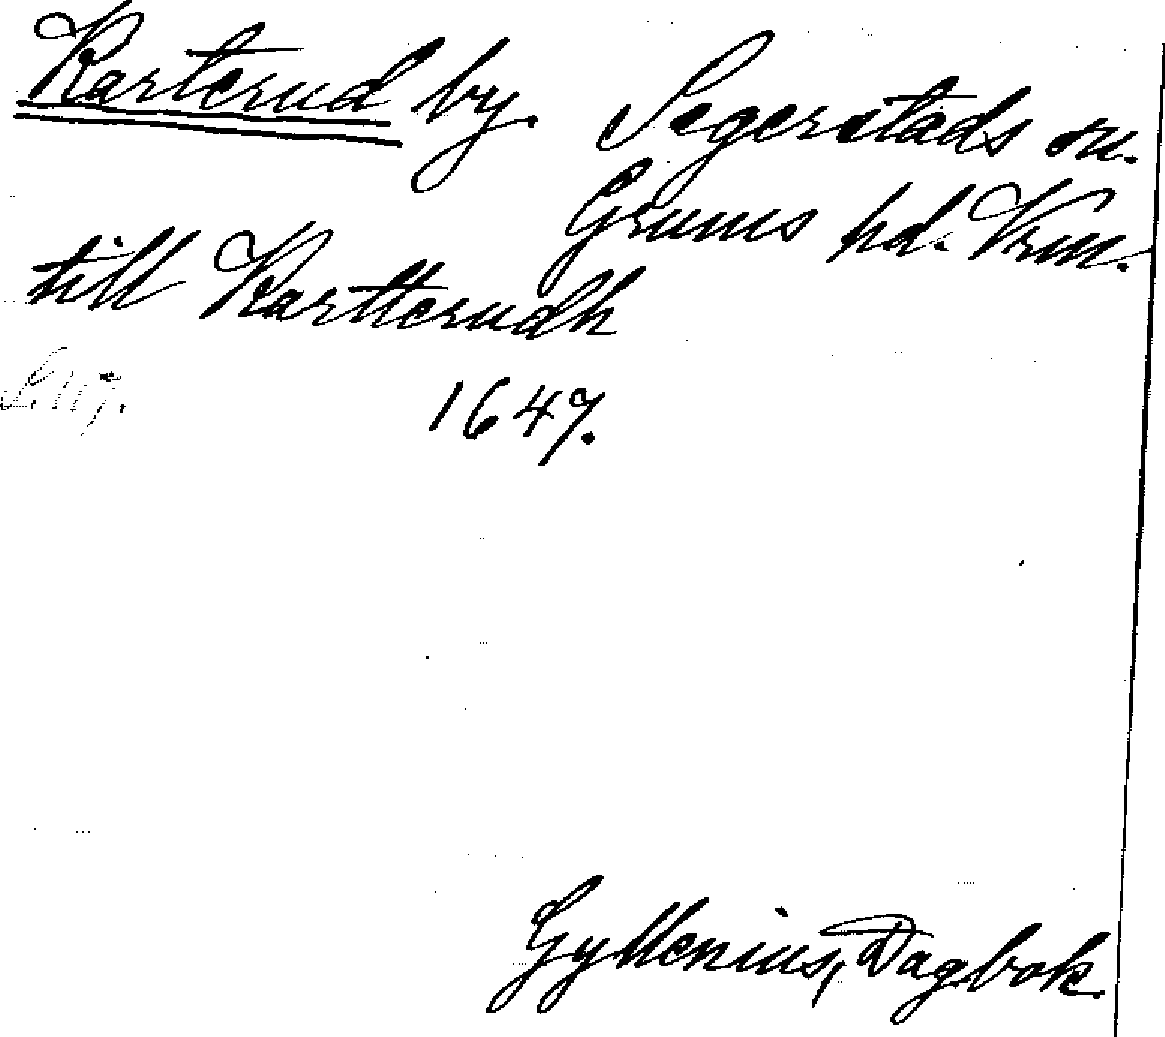 Karterud by. Segerstads sn.
Grums hd. Vrm.
till Kartterudh
S. 117.
1647.
Gyllenius, Dagbok.